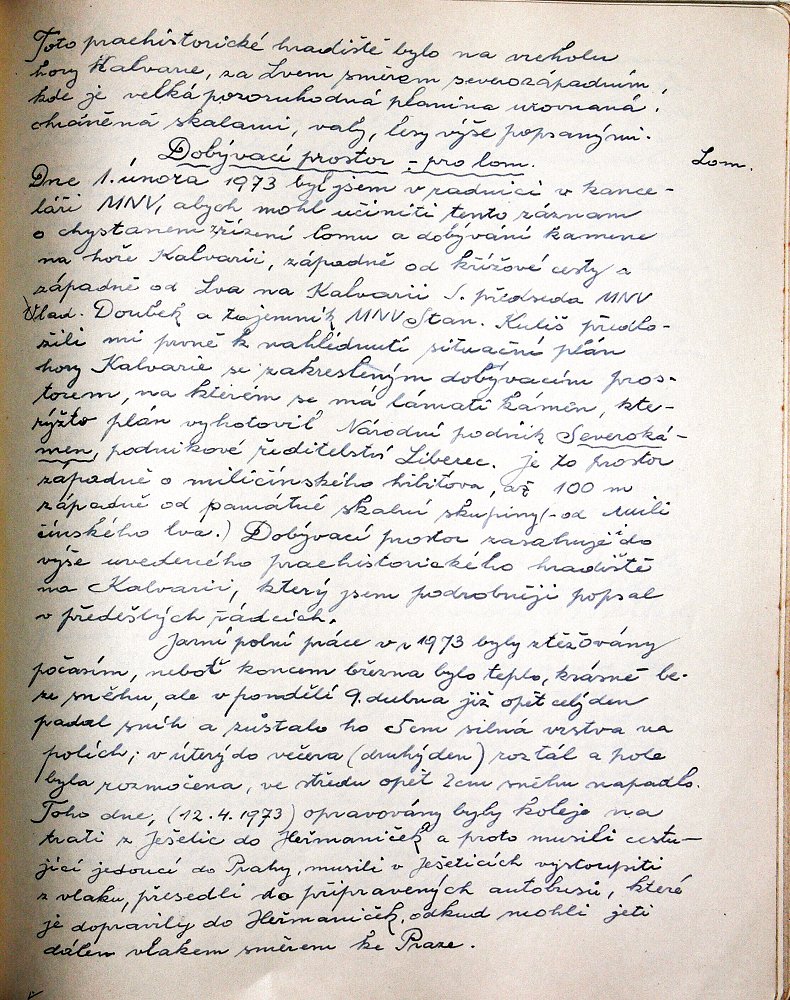 Toto praehistorické hradiště bylo na vrcholu
hory Kalvarie, za Lvem směrem severozápadním,
kde je velká pozoruhodná planina urovnaná,
chráněná skalami, valy, lesy výše popsanými.
Dobývací prostor - pro lom.
Lom.
Dne 1. února 1973 byl jsem v radnici v kance-
láři MNV, abych mohl učiniti tento záznam
o chystaném zřízení lomu a dobývání kamene
na hoře Kalvarii, západně od křížové cesty a
západně od Lva na Kalvarii. Předseda MNV
Vlad. Doubek a tajemník MNV Stan. Kuliš předlo-
žili mi prvně k nahlédnutí situační plán
hory Kalvarie se zakresleným dobývacím pros-
torem, na kterém se má lámati kámen, kte-
rýžto plán vyhotovil Národní podnik Severoká-
men, podnikové ředitelství Liberec. Je to prostor
západně o miličínského hřbitova, až 100 m
západně od památné skalní skupiny (- od Mili
čínského lva.) Dobývací prostor zasahuje i do
výše uvedeného praehistorického hradiště
na Kalvarii, který jsem podrobněji popsal
v předešlých řádcích.
Jarní polní práce v r 1973 byly ztěžovány
počasím, neboť koncem března bylo teplo, krásně be-
ze sněhu, ale v pondělí 9. dubna již opět celý den
padal sníh a zůstalo ho 5cm silná vrstva na
polích; v úterý do večera (druhý den) roztál a pole
byla rozmočena, ve středu opět 2cm sněhu napadlo.
Toho dne, (12.4.1973) opravovány byly koleje na
trati z Ješetic do Heřmaniček a proto musili cestu-
jící jedoucí do Prahy, musili v Ješeticích vystoupiti
z vlaku, přesedli do připravených autobusů, které
je dopravily do Heřmaniček, odkud mohli jeti
dálem vlakem směrem ke Praze.